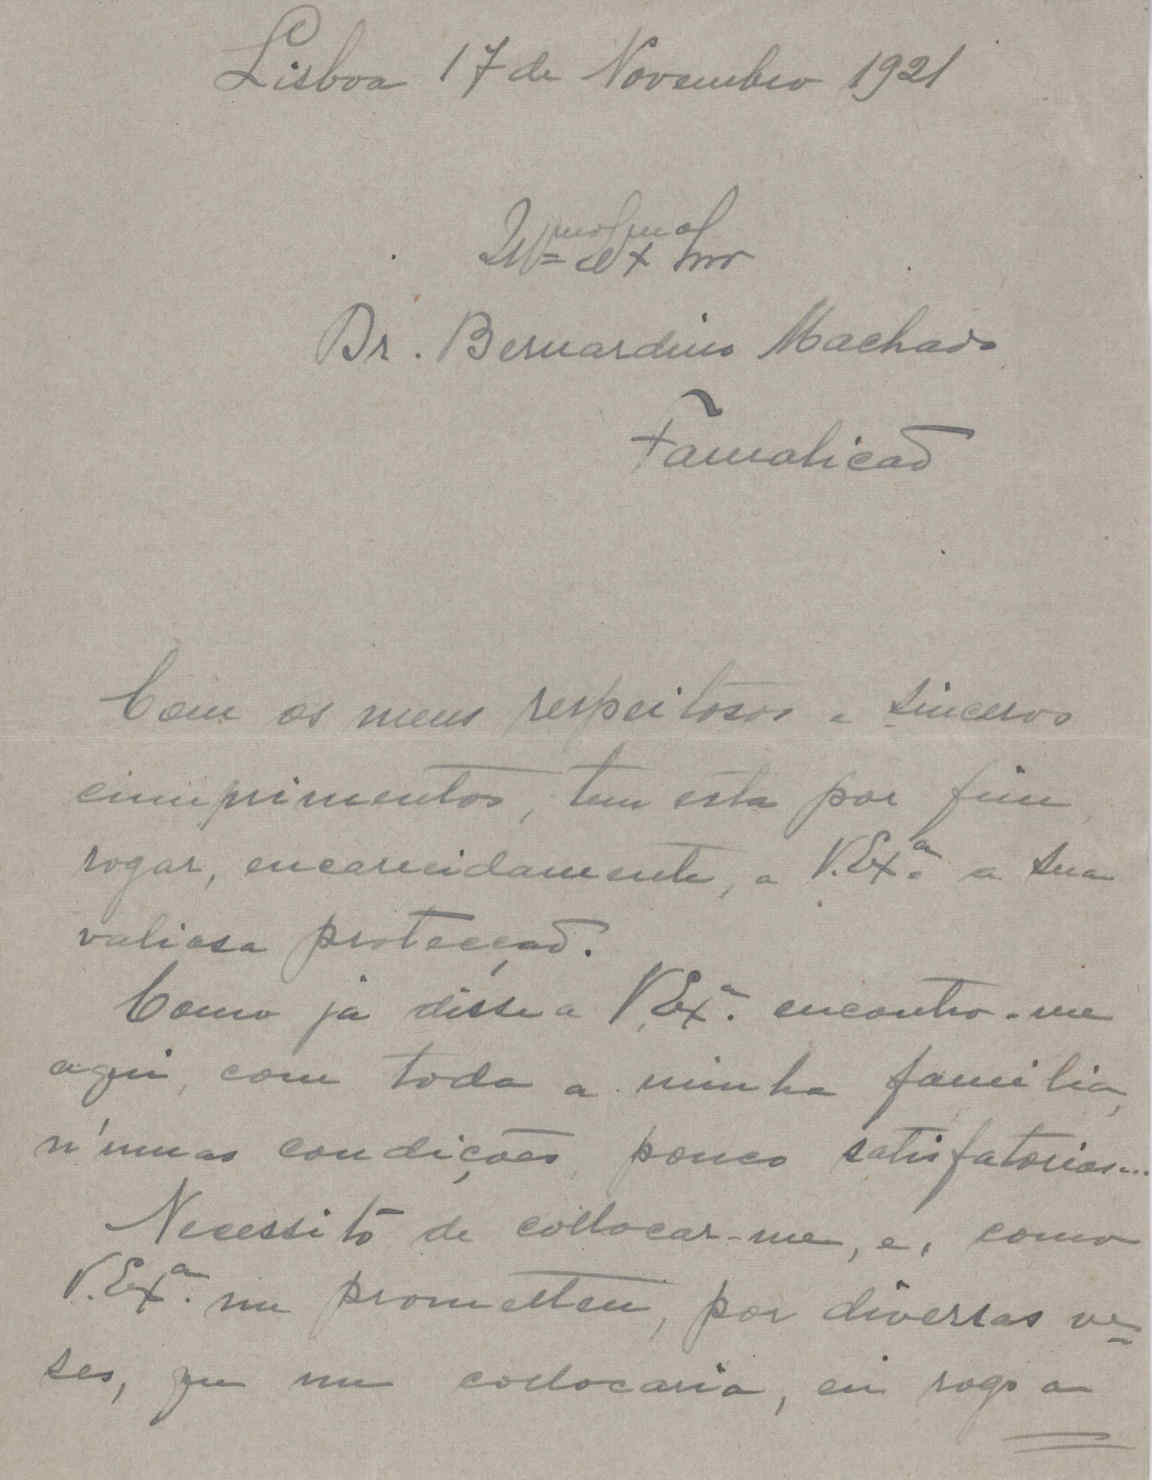 Lisboa 17 de Novembro 1921
Illmo e Exmo Snr
Dr. Bernardino Machado
Famalicão
Com os meus respeitosos e sinceros
cumprimentos, tem esta por fim
rogar, encarecidamente, a V. Exª. a sua
valiosa protecção.
Como já disse a V. Exª. encontro-me
aqui, com toda a minha familia,
n'umas condições pouco satisfatorias...
Necessito de collocar-me, e, como
V. Exª. me prometteu, por diversas ve=
ses, que me collocaria, eu rogo a